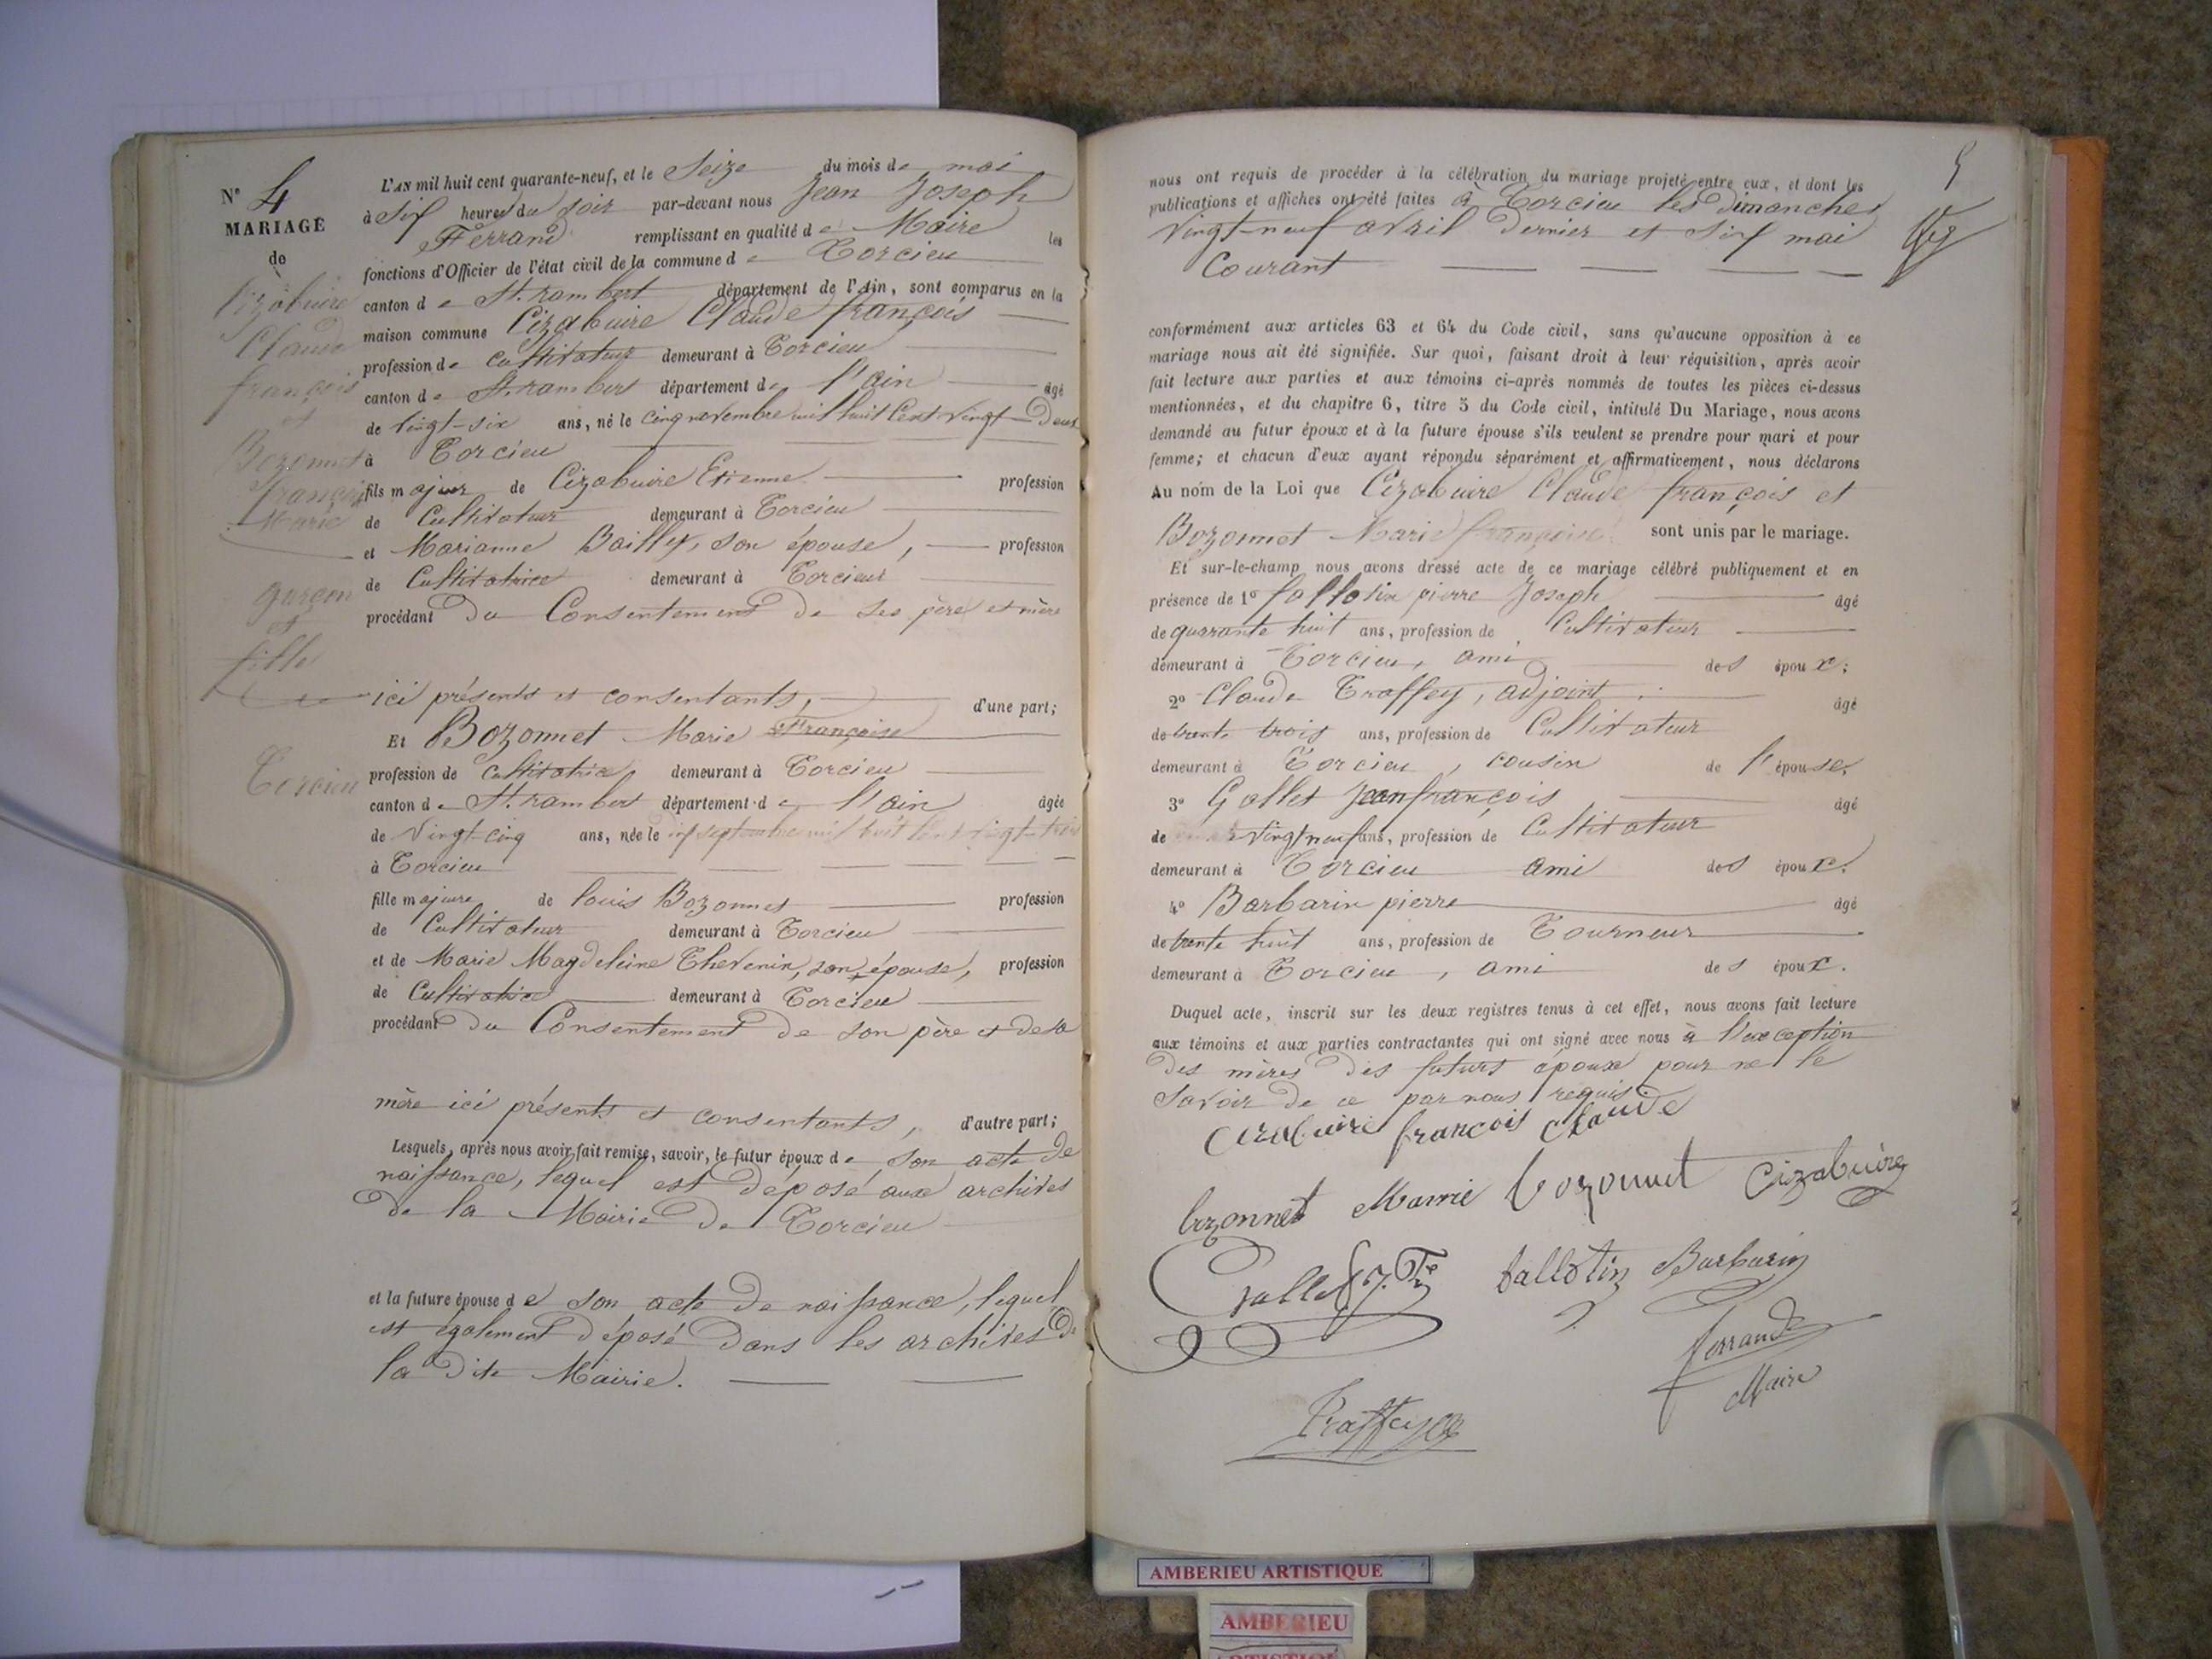 N° 4
MARIAGE
de
Cizabuire
Claude
françois
et
Bozonnet
françoise
Marie
garçon
et
fille
Torcieu
L'AN mil huit cent quarante-neuf, et le Seize du mois de mai
à Six heures du soir par-devant nous Jean Joseph
Ferrand remplissant en qualité de Maire les
fonctions d'Officier de l'état civil de la commune de Torcieu
canton de St. rambert département de l'Ain, sont comparus en la
maison commune Cizabuire Claude françois
profession de cultivateur demeurant à Torcieu
canton de St. rambert département de l'ain âgé
de vingt-six ans, né le cinq novembre mil huit Cent vingt-Deux
à Torcieu
fils majeur de Cizabuire Etienne profession
de Cultivateur demeurant à Torcieu
et Marianne Bailly, son épouse, profession
de Cultivatrice demeurant à Torcieu
procédant Du Consentement de ses père et mère
ici présents et consentants, d'une part;
Et Bozonnet Marie Françoise
profession de Cultivatrice demeurant à Torcieu
canton de St. rambert département de l'ain âgée
de Vingt-cinq ans, née le septembre mil huit Cent vingt-trois
à Torcieu
fille majeure de louis Bozonnet profession
de Cultivateur demeurant à Torcieu
et de Marie Magdeleine Thevenin, son épouse, profession
de Cultivatrice demeurant à Torcieu
procédant Du Consentement de son père et de sa
mère ici présents et consentants, d'autre part;
Lesquels, après nous avoir fait remise, savoir, le futur époux de son acte de
naissance, lequel est déposé aux archives
De la Mairie De Torcieu
et la future épouse de son acte De naissance, lequel
est également déposé Dans les archives De
la Dite Mairie.
5
nous ont requis de procéder à la célébration du mariage projeté entre eux, et dont les
publications et affiches ont été faites à Torcieu les dimanches
vingt-neuf avril Dernier et Six mai
Courant
conformément aux articles 63 et 64 du Code civil, sans qu'aucune opposition à ce
mariage nous ait été signifiée. Sur quoi, faisant droit à leur réquisition, après avoir
fait lecture aux parties et aux témoins ci-après nommés de toutes les pièces ci-dessus
mentionnées, et du chapitre 6, titre 5 du Code civil, intitulé Du Mariage, nous avons
demandé au futur époux et à la future épouse s'ils veulent se prendre pour mari et pour
femme; et chacun d'eux ayant répondu séparément et affirmativement, nous déclarons
Au nom de la Loi que Cizabuire Claude françois et
Bozonnet Marie françoise sont unis par le mariage.
Et sur-le-champ nous avons dressé acte de ce mariage célébré publiquement et en
présence de 1° fallotin pierre Joseph âgé
de quarante huit ans, profession de Cultivateur
demeurant à Torcieu, ami des époux;
2° Claude Traffey, adjoint, âgé
de trente trois ans, profession de Cultivateur
demeurant à Torcieu, cousin de l'épouse,
3° Gallet Jean françois âgé
de vingt neuf ans, profession de Cultivateur
demeurant à Torcieu ami des époux.
4° Barbarin pierre âgé
de trente huit ans, profession de Tourneur
demeurant à Torcieu, ami des époux.
Duquel acte, inscrit sur les deux registres tenus à cet effet, nous avons fait lecture
aux témoins et aux parties contractantes qui ont signé avec nous à l'exception
Des mères Des futurs époux pour ne le
Savoir De ce par nous requis
Cizabuire françois Claude
bozonnet Marrie bozonnet Cizabuire
Gallet J. fallotin Barbarin
ferrand
Maire
Traffey
AMBERIEU ARTISTIQUE
AMBERIEU
ARTISTIQUE